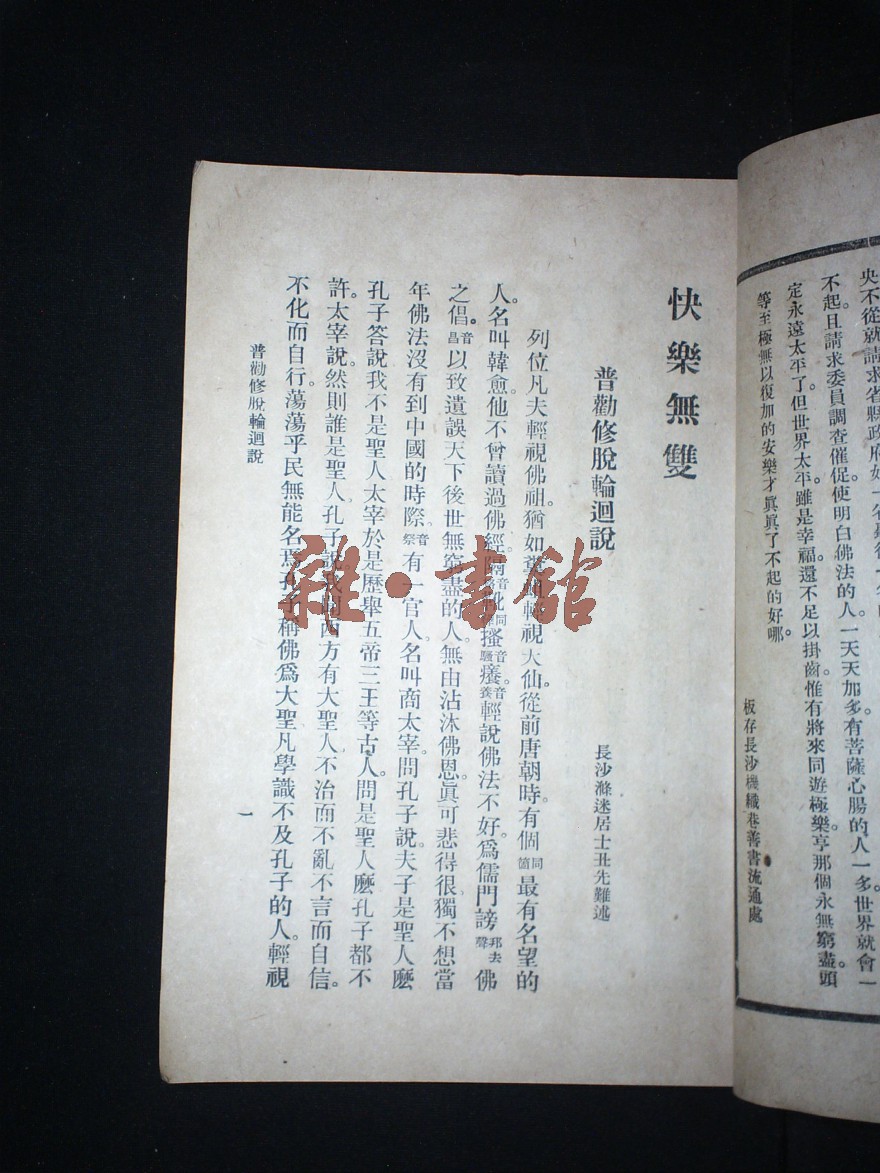 央不從就請求省縣政府如一省縣得一名
不起且請求委員調查催促使明白佛法的人。一天天加多有菩薩心腸的人一多。世界就會一
定永遠太平了但世界太平。雖是幸福。還不足以掛齒惟有將來同遊極樂享那個永無窮盡頭
等至極無以復加的安樂才眞眞了不起的好哪。
板存長沙機織巷善書流通處
快樂無雙
普勸修脫輪迴說
長沙滌迷居士丑先難述
列位凡夫輕視佛祖。猶如糞蛆輕視大仙從前唐朝時有個同箇最有名望的
人。名叫韓愈。他不曾讀過佛經。隔音搔音騷癢。音養輕說佛法不好。爲儒門謗邦去聲佛
之倡。音昌以致遺誤天下後世無窮盡的人。無由沾沐佛恩。眞可悲得很獨不想當
年佛法沒有到中國的時際。音祭有一官人。名叫商太宰。問孔子說。夫子是聖人麼
孔子答說我不是聖人太宰於是歷舉五帝三王等古人。問是聖人麼孔子都不
許。太宰說。然則誰是聖人。孔子說。西方有大聖人不治而不亂不言而自信。
不化而自行。蕩蕩乎民無能名焉。孔子稱佛爲大聖凡學識不及孔子的人。輕視
普勸修脫輪迴說
一
雜·書館